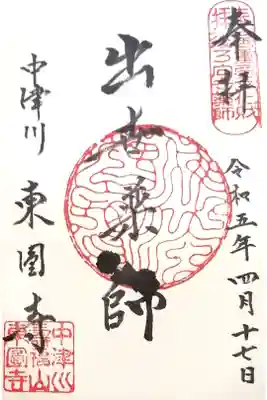 奉拝
令和五年四月十七日
出世薬師
中津川 東圓寺
東圓寺